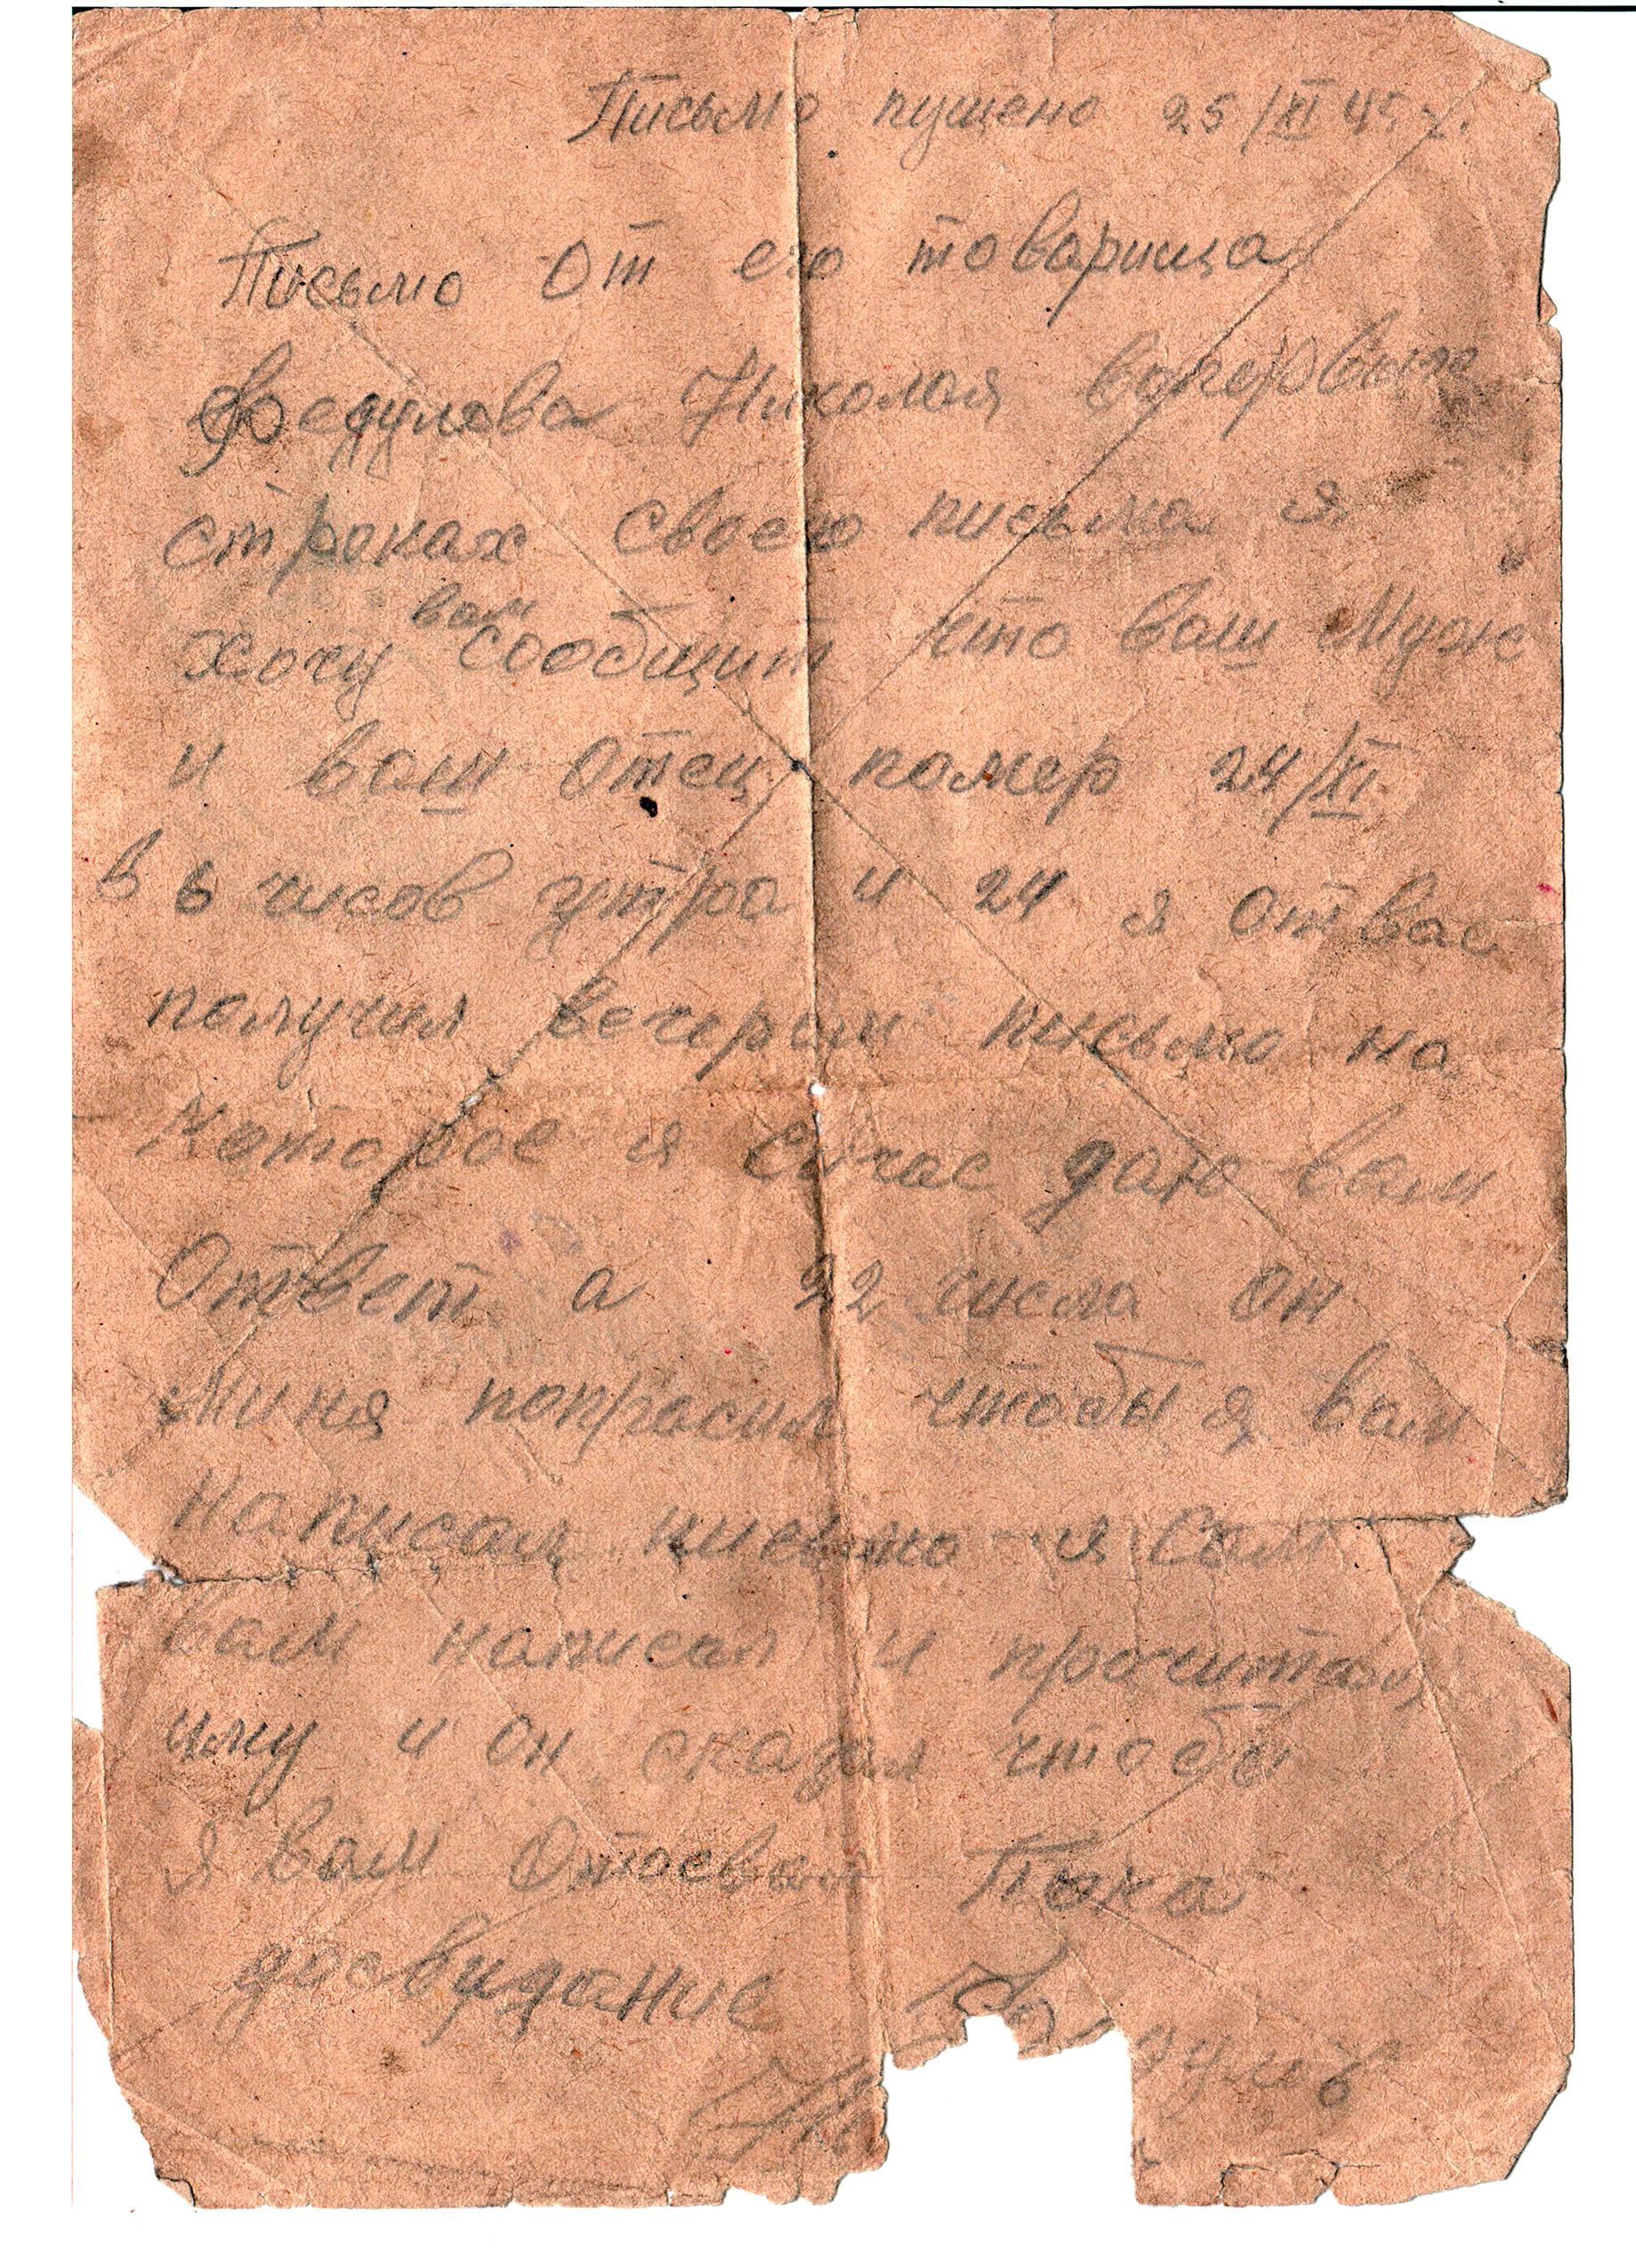 Письмо пущено 25/XI 45 г.
Письмо От его товарища
Федулова Николая вопервых
строках своего письма я
хочу вам сообщит что ваш Муж
и ваш Отец помер 24/XI.
В 6 чисов утра и 24 я От вас
получил вечером письмо на
Которое я сичас даю вам
Ответ а 22 числа он
Миня попросил чтобы я вам
Написал письмо я Сам
вам написал и прочитал
иму и он сказал чтобы
я вам Отослал Пока
досвидание